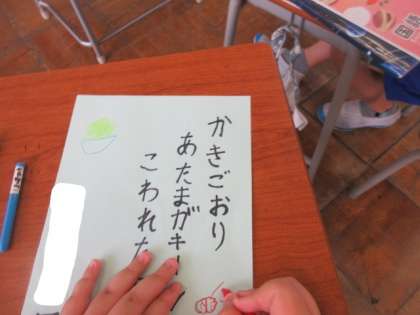 かきごおり
あたまがキー
こわれた